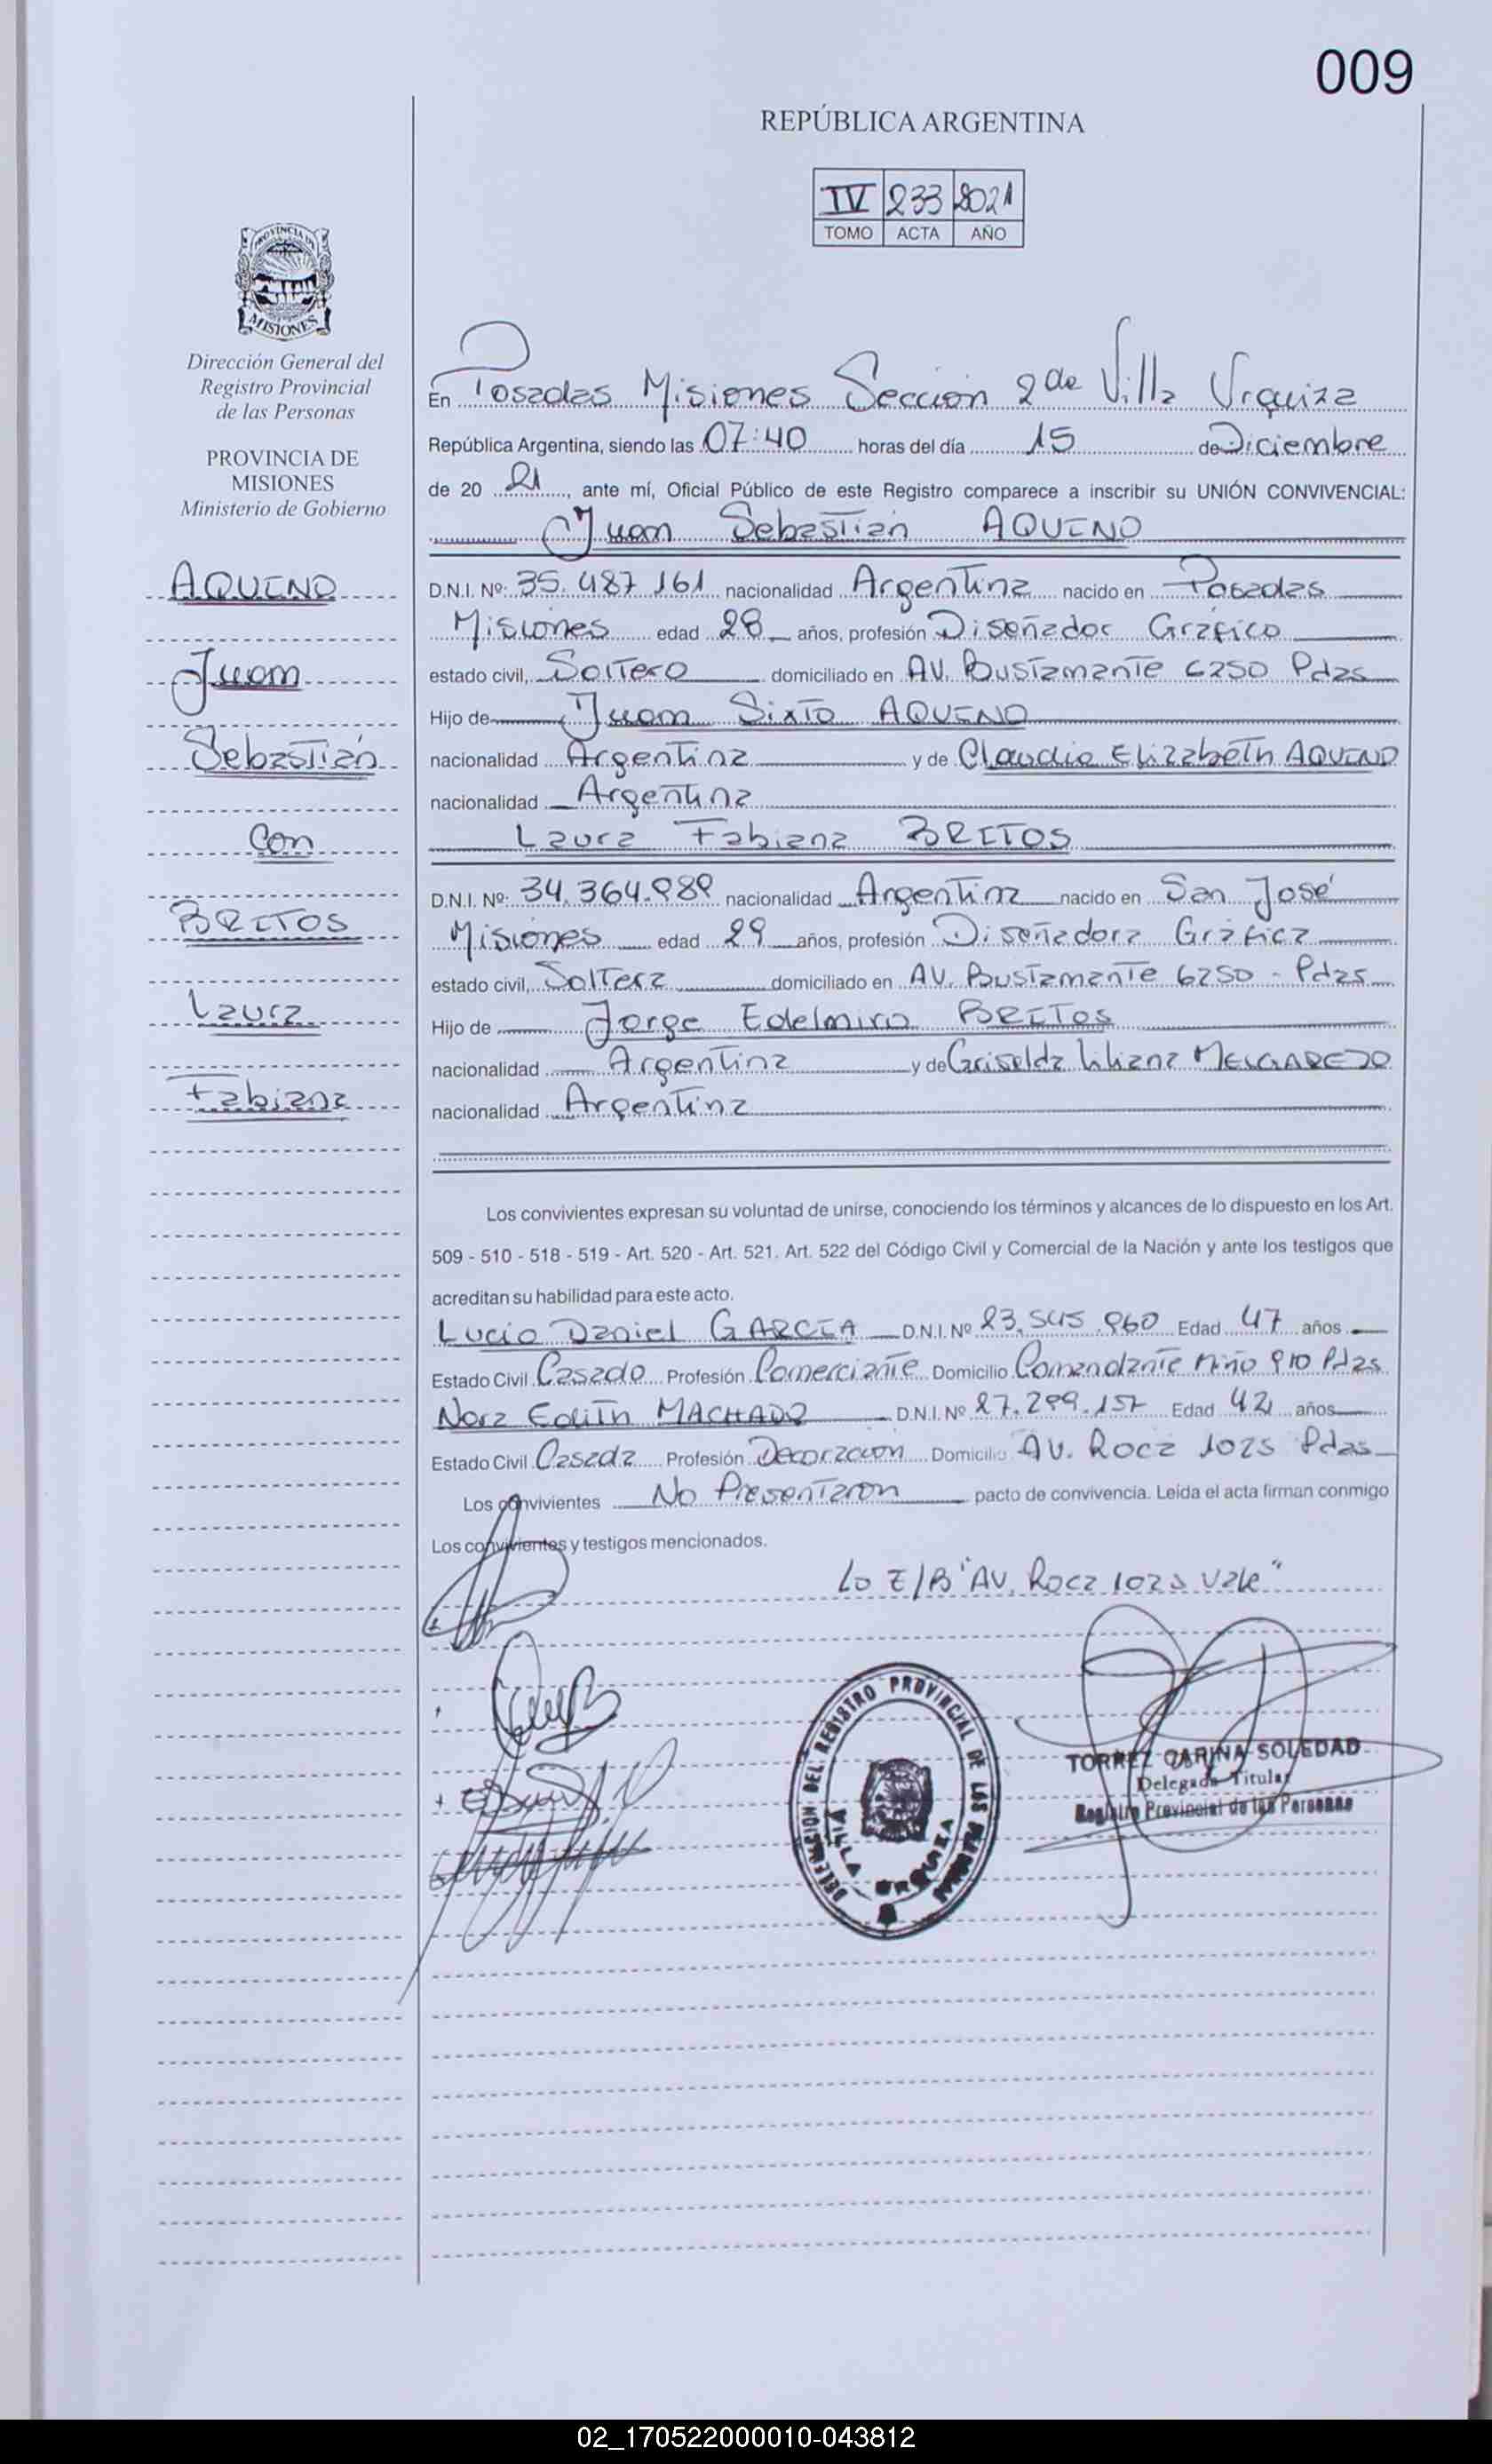 009
REPÚBLICA ARGENTINA
IV 233 2021
TOMO ACTA AÑO
PROVINCIA DE
MISIONES
Dirección General del
Registro Provincial
de las Personas
PROVINCIA DE
MISIONES
Ministerio de Gobierno
AQUINO
Juan
Sebastián
Con
BRITOS
Laura
Fabiana
En Posadas Misiones Sección 2da Villa Urquiza
República Argentina, siendo las 07:40 horas del día 15 de Diciembre
de 20 21, ante mí, Oficial Público de este Registro comparece a inscribir su UNIÓN CONVIVENCIAL:
Juan Sebastián AQUINO
D.N.I. Nº: 35.487.161 nacionalidad Argentina nacido en Posadas
Misiones edad 28 años, profesión Diseñador Gráfico
estado civil, Soltero domiciliado en AV. Bustamante 6250 Pdas
Hijo de Juan Sixto AQUINO
nacionalidad Argentina y de Claudia Elizabeth AQUINO
nacionalidad Argentina
Laura Fabiana BRITOS
D.N.I. Nº: 34.364.989 nacionalidad Argentina nacido en San José
Misiones edad 29 años, profesión Diseñadora Gráfica
estado civil, Soltera domiciliado en AV. Bustamante 6250 - Pdas
Hijo de Jorge Edelmiro BRITOS
nacionalidad Argentina y de Griselda Liliana MELGAREJO
nacionalidad Argentina
Los convivientes expresan su voluntad de unirse, conociendo los términos y alcances de lo dispuesto en los Art.
509 - 510 - 518 - 519 - Art. 520 - Art. 521. Art. 522 del Código Civil y Comercial de la Nación y ante los testigos que
acreditan su habilidad para este acto.
Lucio Daniel GARCIA D.N.I. Nº 23.545.960 Edad 47 años
Estado Civil Casado Profesión Comerciante Domicilio Comandante Miño 910 Pdas
Nora Edith MACHADO D.N.I. Nº 27.299.157 Edad 42 años
Estado Civil Casada Profesión Decoracion Domicilio AV. Roca 1025 Pdas
Los convivientes No Presentaron pacto de convivencia. Leída el acta firman conmigo
Los convivientes y testigos mencionados.
Lo E/B "AV. Roca 1025 Vale"
DELEGACION DEL REGISTRO PROVINCIAL DE LAS PERSONAS
VILLA URQUIZA
TORREZ CARINA SOLEDAD
Delegada Titular
Registro Provincial de las Personas
02_170522000010-043812